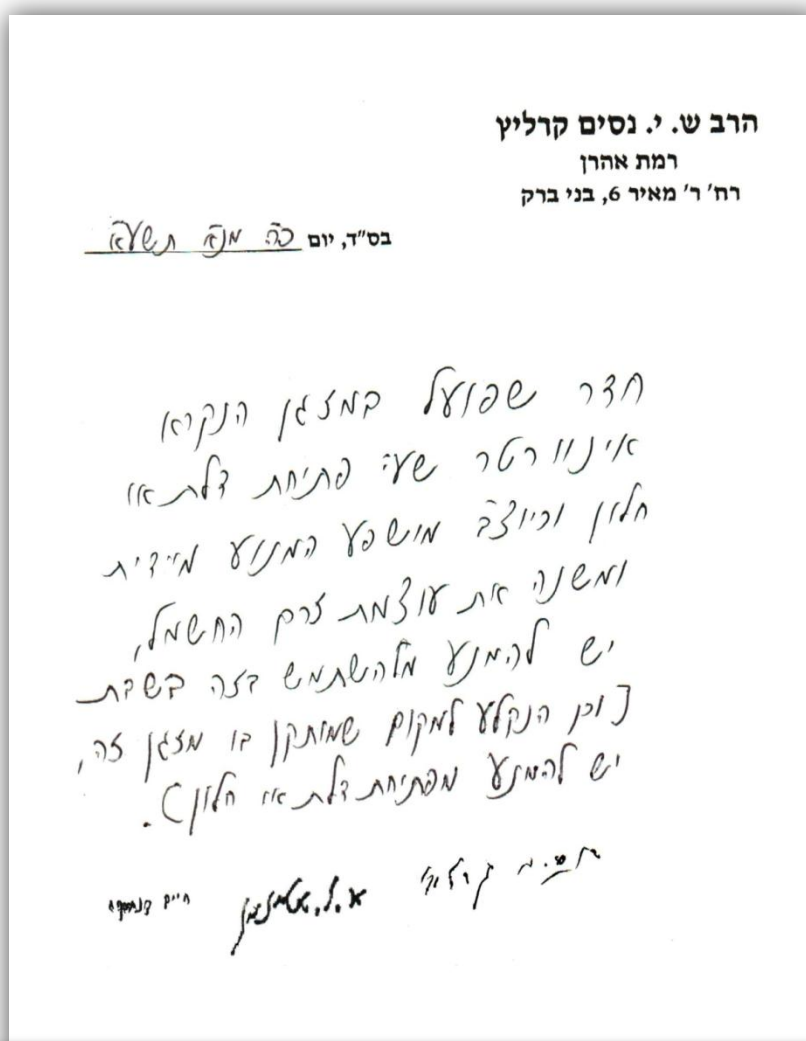 הרב ש. י. נסים קרליץ
רמת אהרן
רח' ר' מאיר 6, בני ברק
בס"ד, יום כה מנ"א תשע"א
חדר שפועל במזגן הנקרא
אינוורטר שע"י פתיחת דלת או
חלון וכיוצ"ב מושפע המנוע מיידית
ומשנה את עוצמת זרם החשמל,
יש להמנע מלהשתמש בזה בשבת
[וכן הנקלע למקום שמותקן בו מזגן זה,
יש להמנע מפתיחת דלת או חלון].
חיים